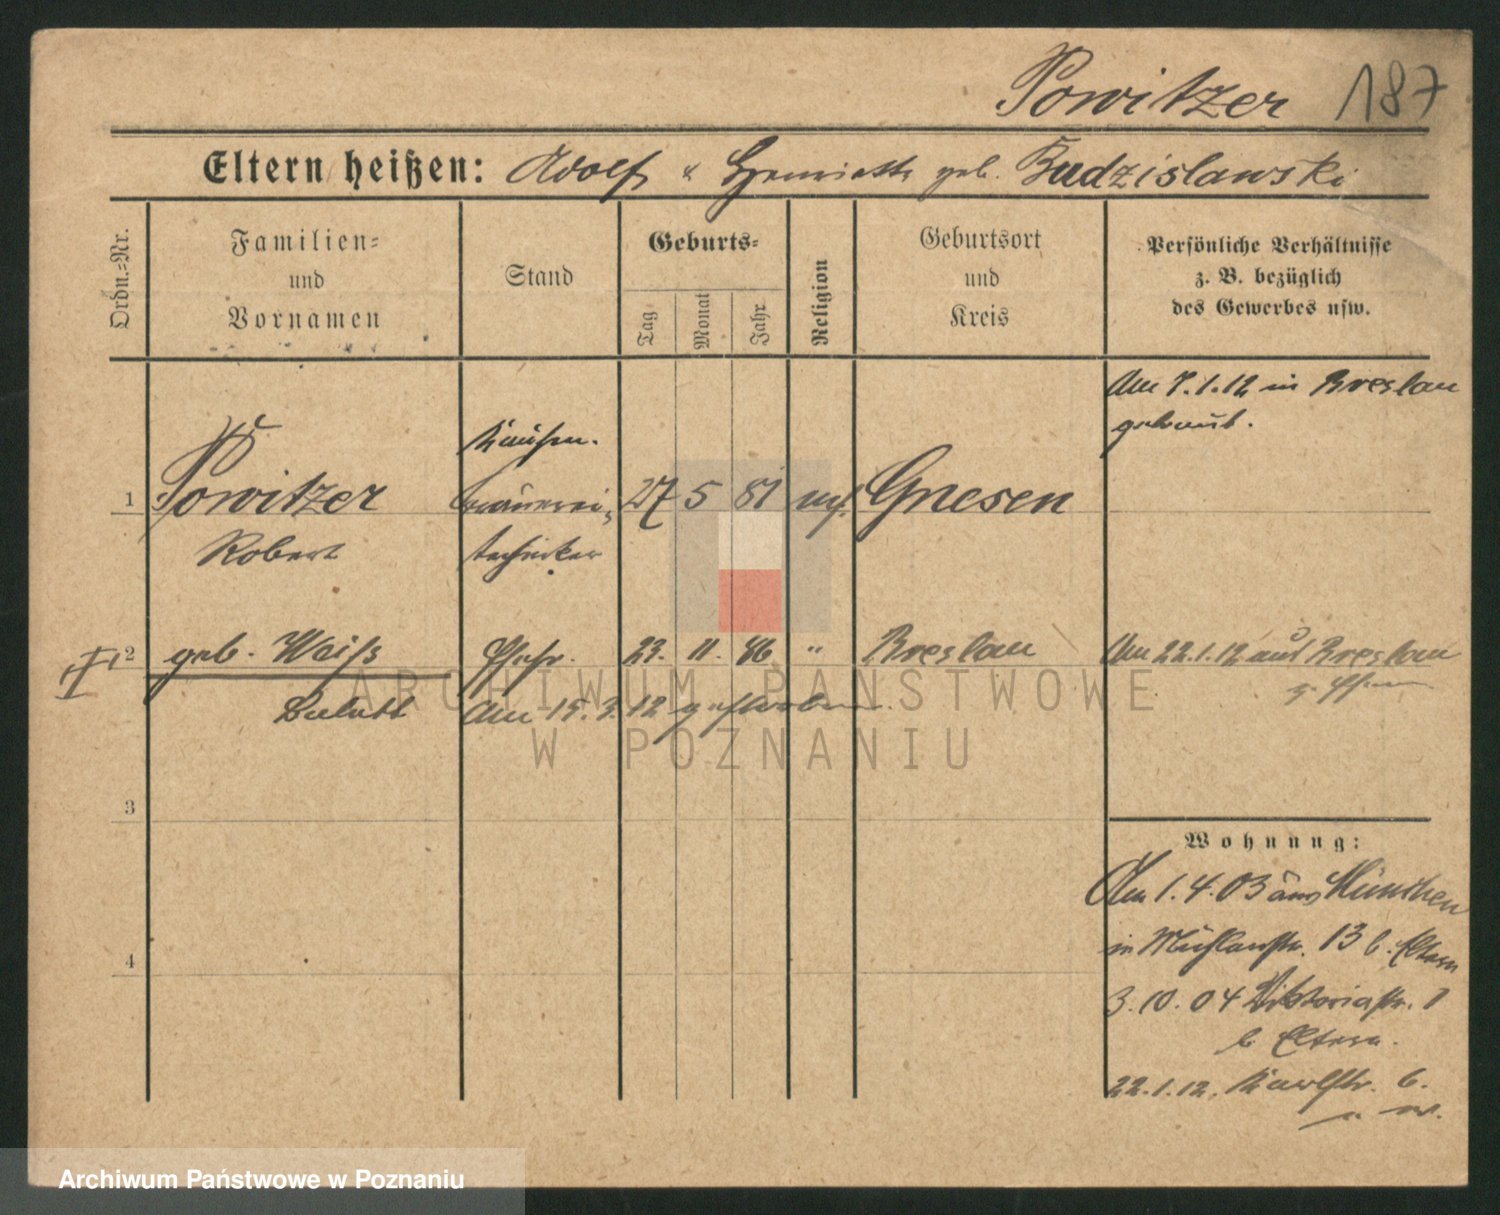 Powitzer 187
Eltern heißen: Adolf u Henriette geb. Budzislawski
Ordn.-Nr.
Familien-
und
Vornamen
Stand
Geburts-
Tag
Monat
Jahr
Religion
Geburtsort
und
Kreis
Persönliche Verhältnisse
z. B. bezüglich
des Gewerbes usw.
Am 7.1.12 in Breslau
getraut.
Kaufm.
1 Powitzer Brauerei- 27 5 81 Gnesen
Robert techniker
2 geb. Weiß Ehefr. 23. 11. 86 " Breslau Am 22.1.12 aus Breslau
Am 15.3.12 gestorben.
3
Wohnung:
Am 1.4.03 aus München
in Mühlenstr. 13 b. Eltern
4
3.10.04 Viktoriastr.
b Eltern.
22.1.12.
ARCHIWUM PAŃSTWOWE
W POZNANIU
Archiwum Państwowe w Poznaniu